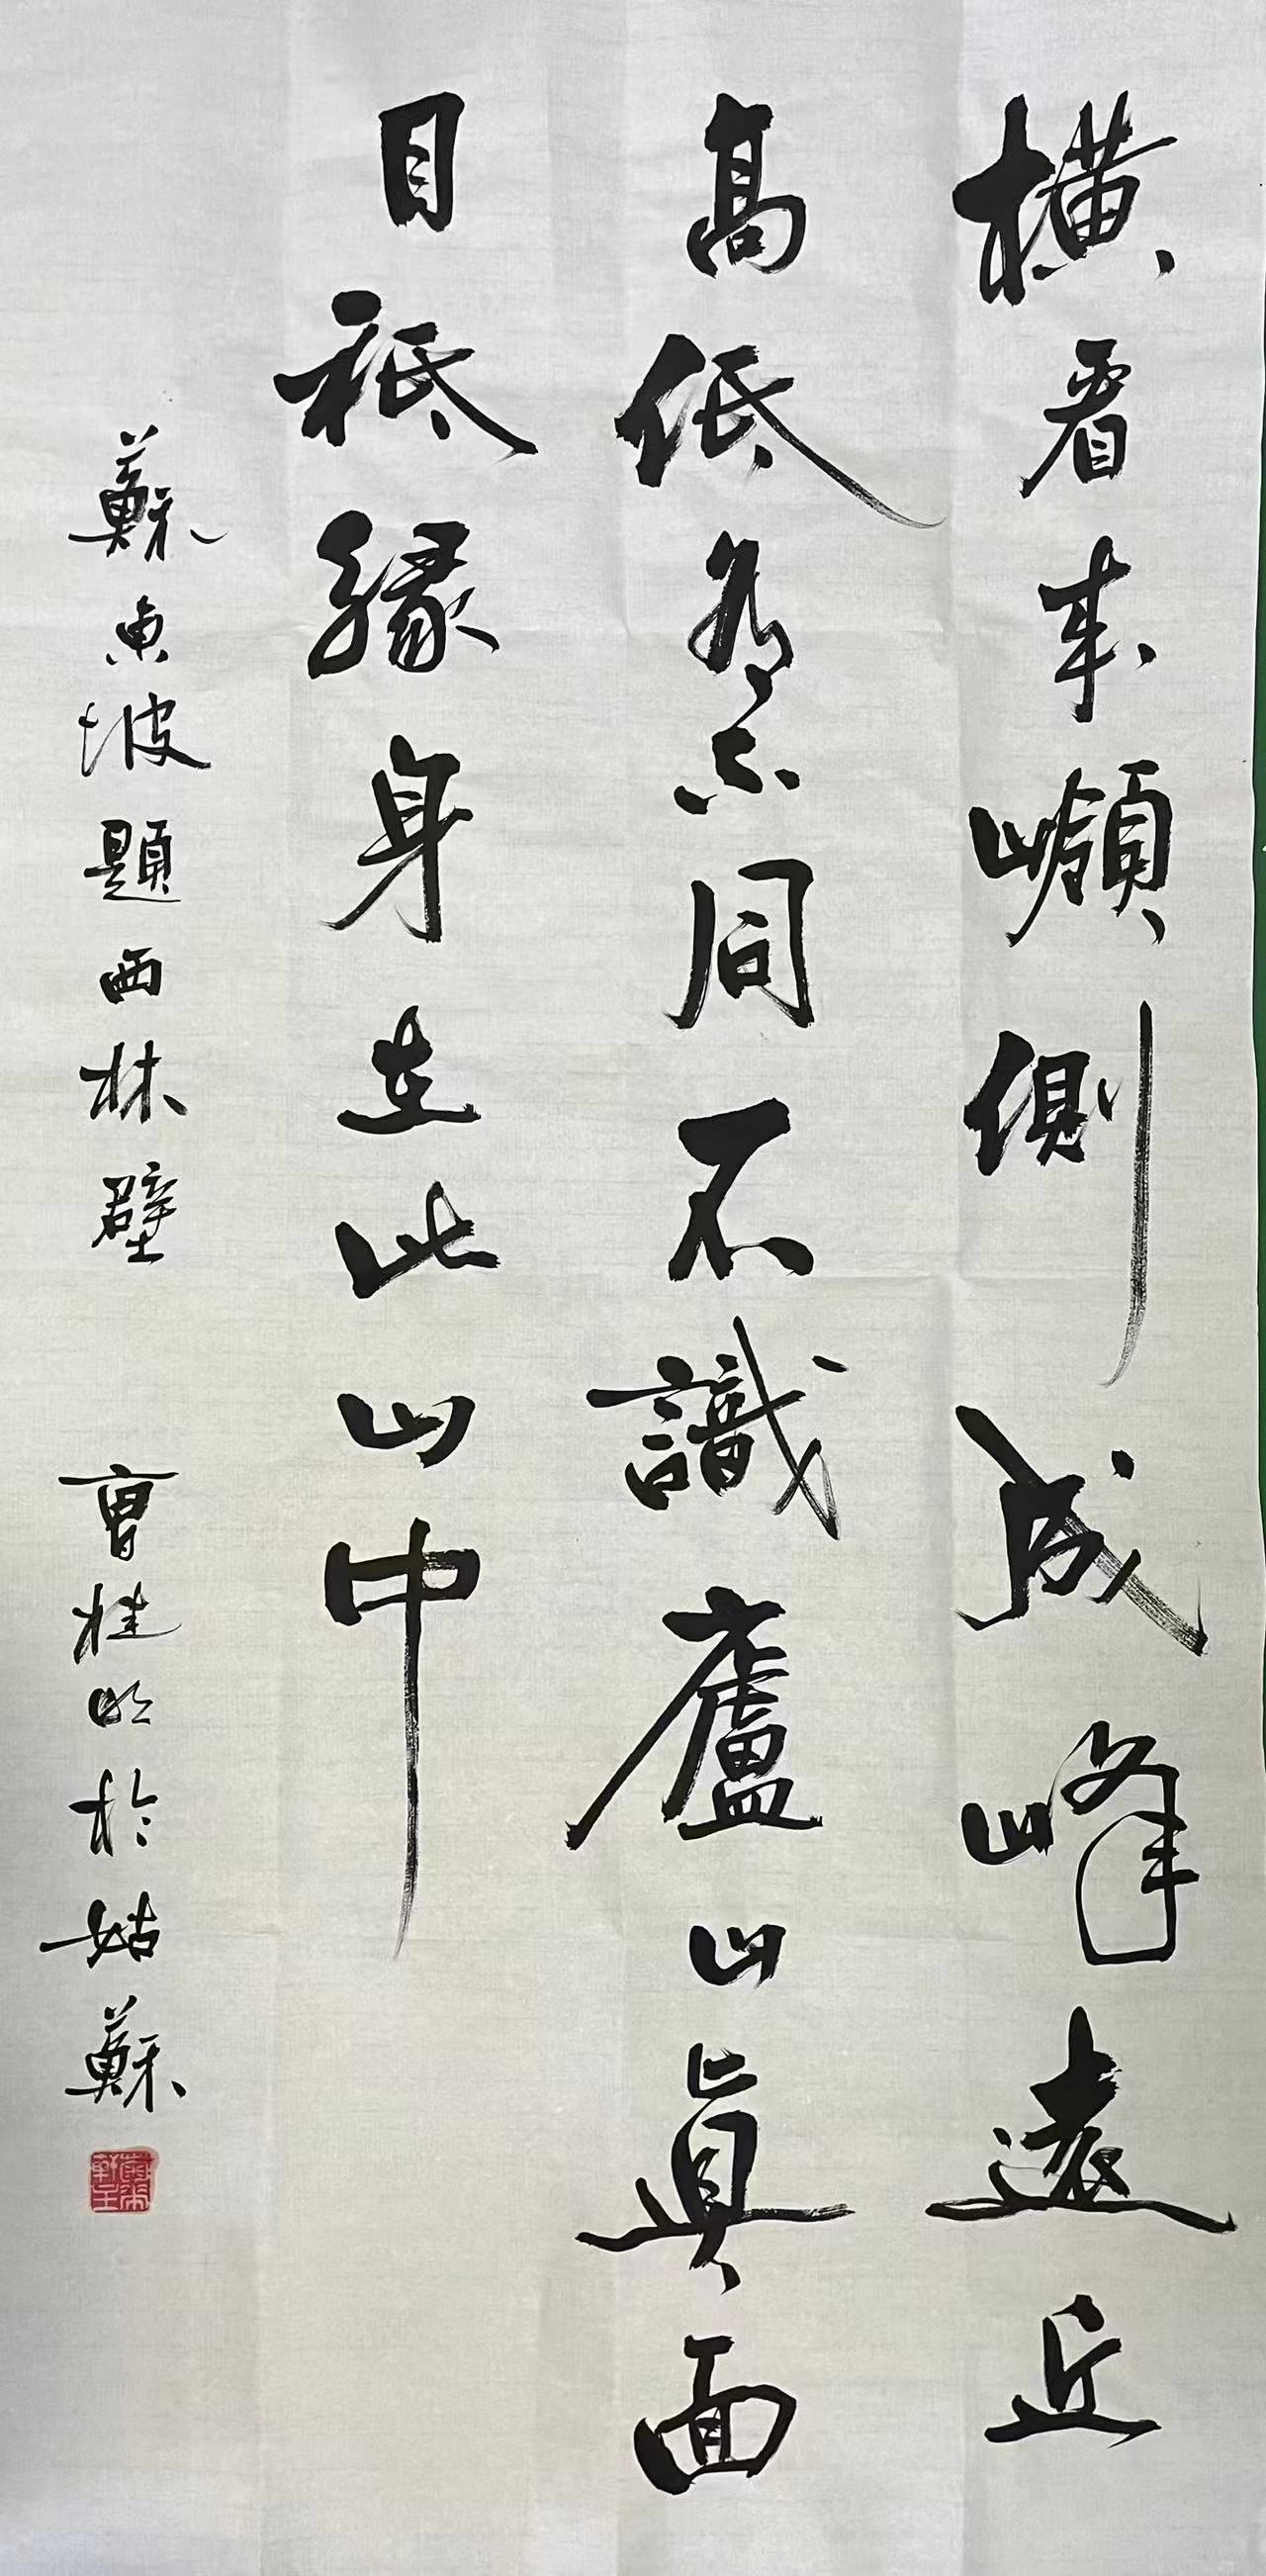 橫看来嶺側成峰遠近
高低各不同不識廬山真面
目祗緣身在此山中
蘇東坡題西林壁 曹桂明於姑蘇